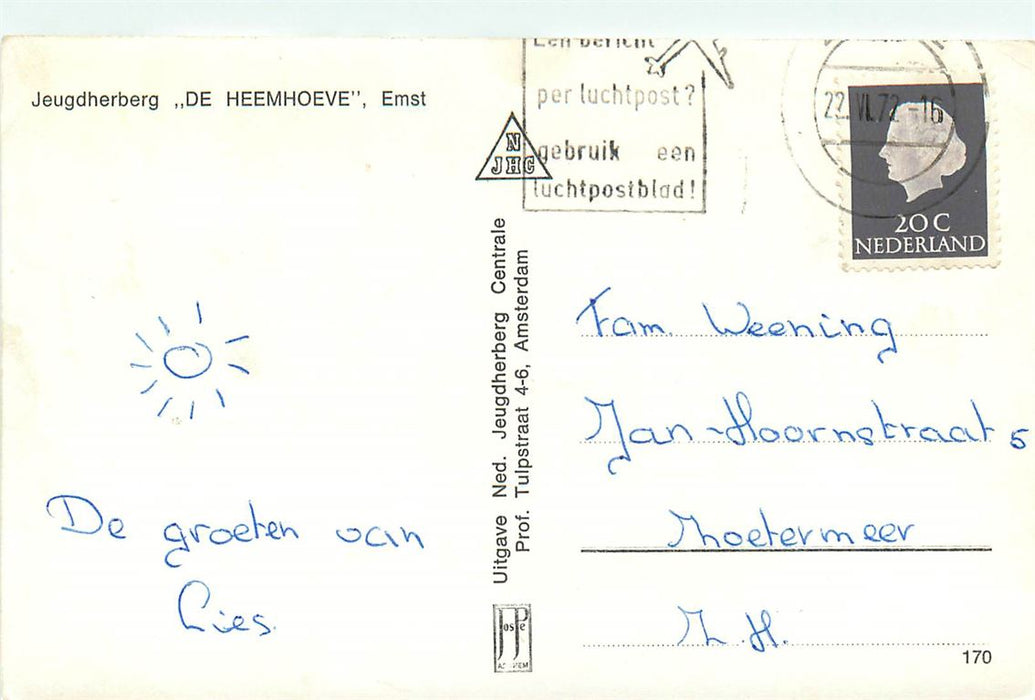 Jeugdherberg „DE HEEMHOEVE”, Emst
Een bericht
per luchtpost?
gebruik een
luchtpostblad!
N
JHC
22.VI.72-16
20 C
NEDERLAND
Uitgave Ned. Jeugdherberg Centrale
Prof. Tulpstraat 4-6, Amsterdam
Fam. Weening
Jan-Hoornstraat 5
Zoetermeer
Z.H.
De groeten van
Lies.
JosPe
170